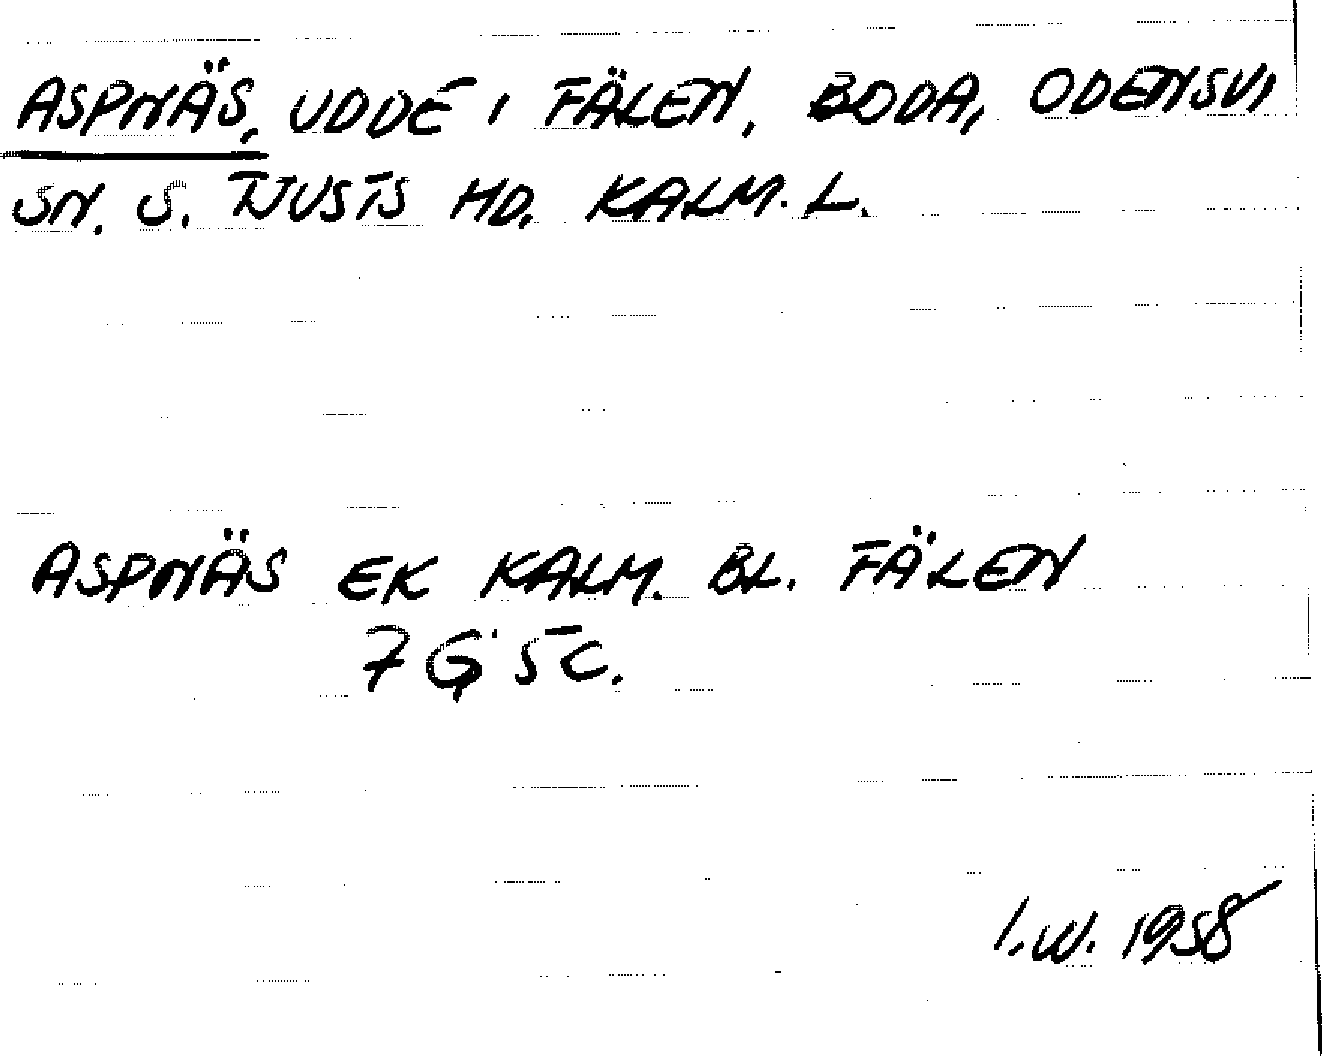 ASPNÄS, UDDE I FÄLEN, BODA, ODENSVI
SN. S. TJUSTS HD. KALM. L.
ASPNÄS EK KALM. BL. FÄLEN
7 G 5 C.
I.W. 1958